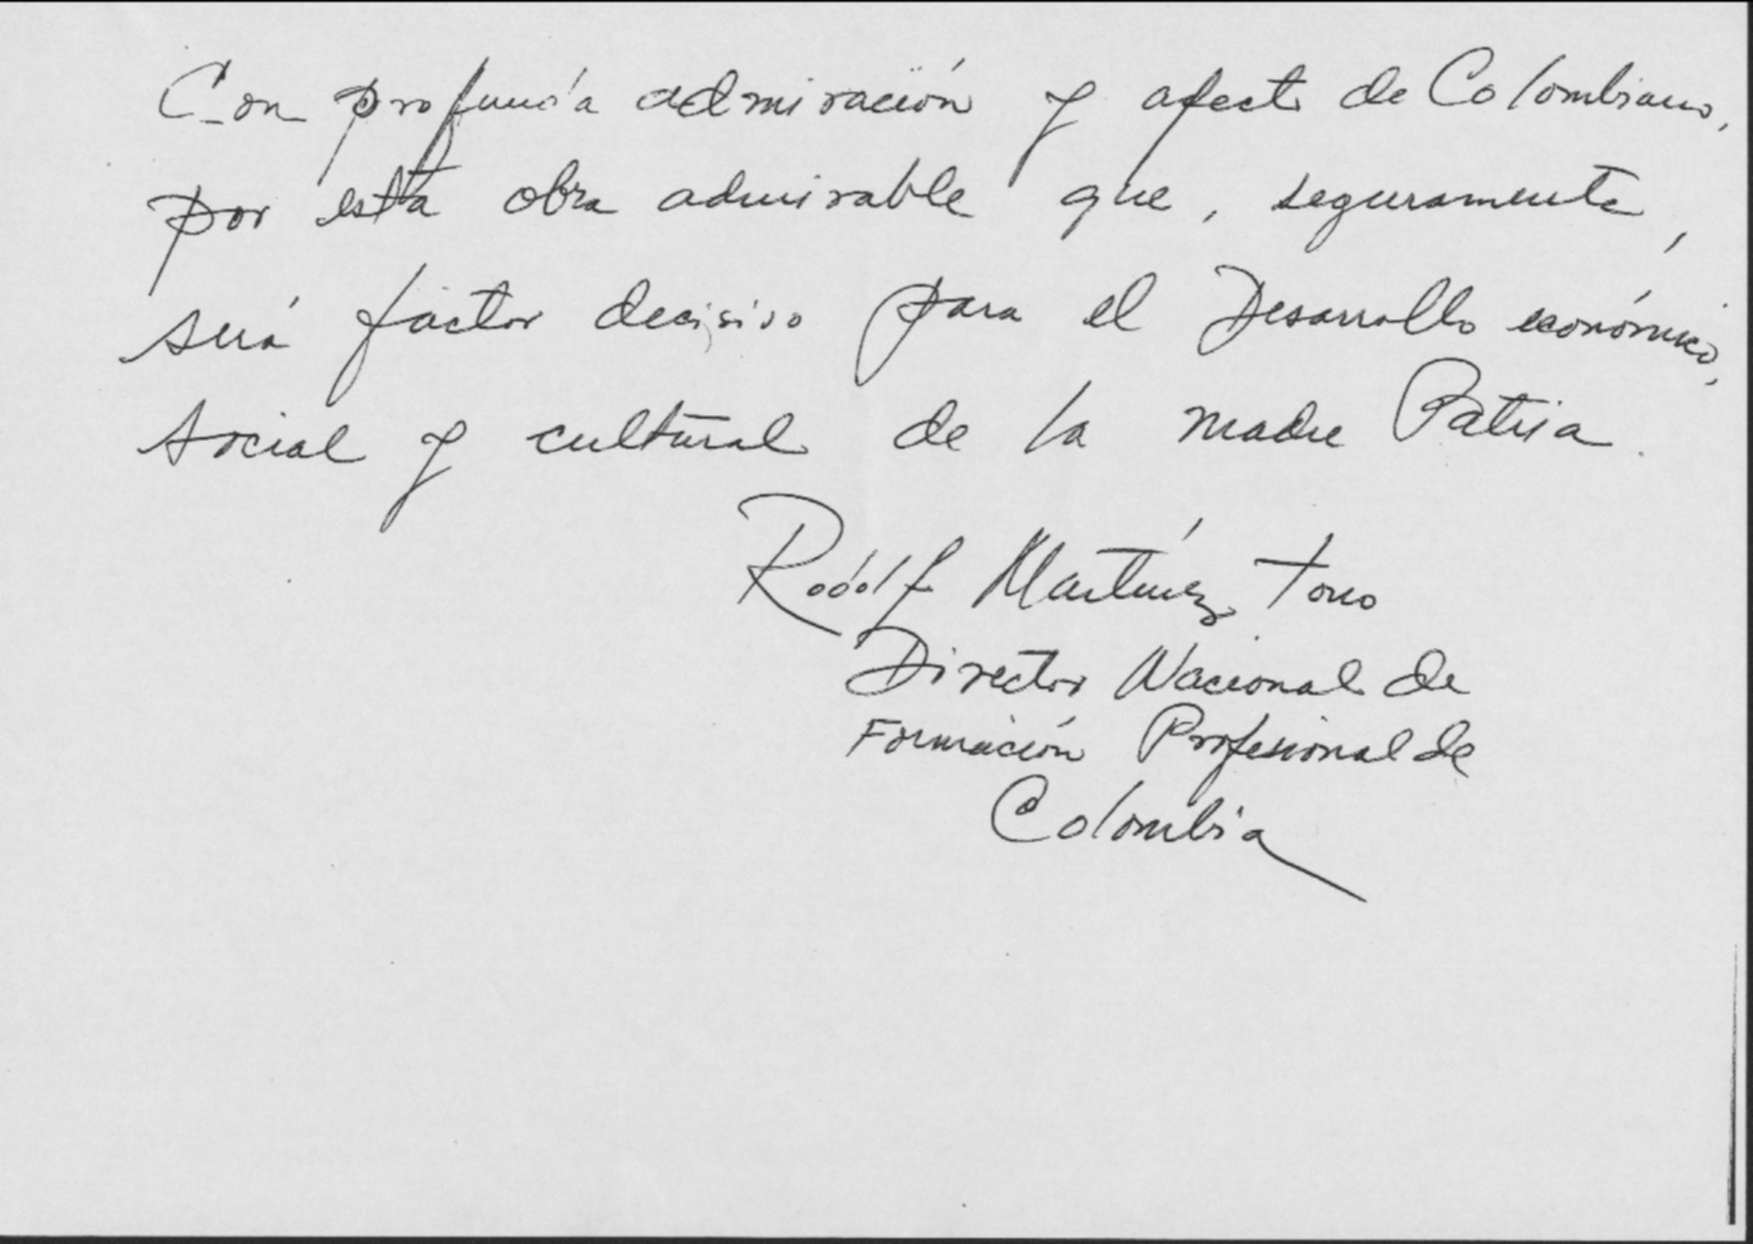 Con profunda admiración y afecto de Colombiano,
por esta obra admirable que, seguramente,
será factor decisivo para el Desarrollo económico,
social y cultural de la madre Patria.
Rodolf Martínez Tono
Director Nacional de
Formación Profesional de
Colombia